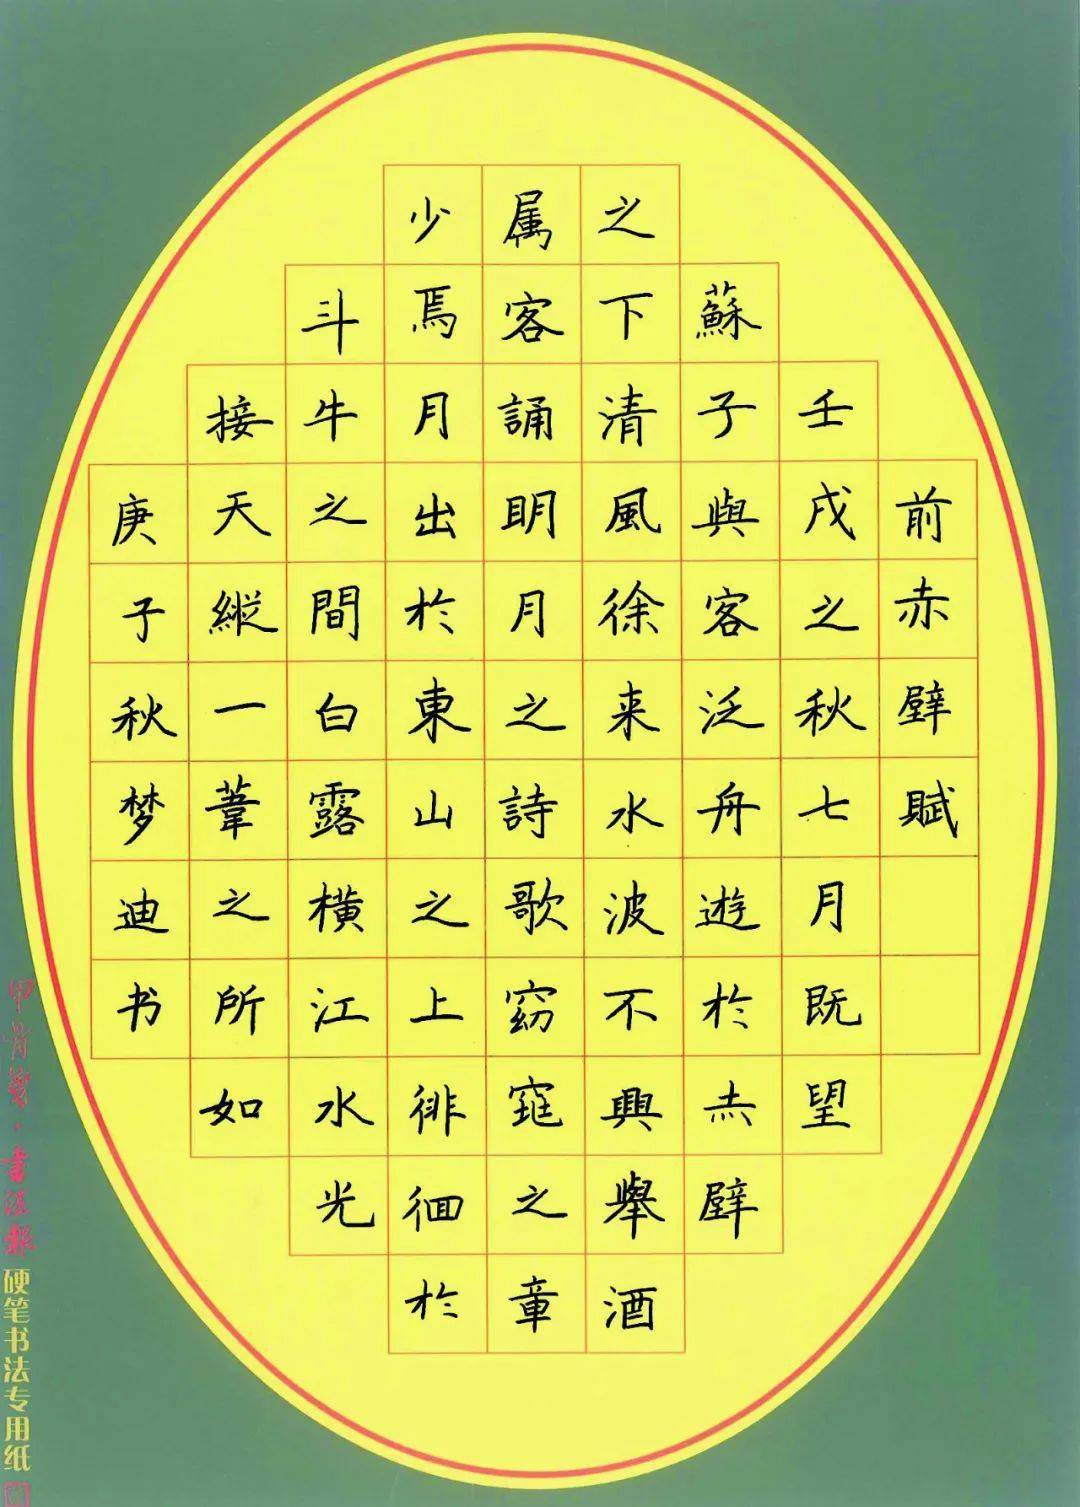 前赤壁賦
壬戌之秋七月既望
蘇子與客泛舟遊於赤壁
之下清風徐来水波不興舉酒
属客誦明月之詩歌窈窕之章
少焉月出於東山之上徘徊於
斗牛之間白露横江水光
接天縱一葦之所如
庚子秋梦迪书
甲骨·書法報硬笔书法专用纸